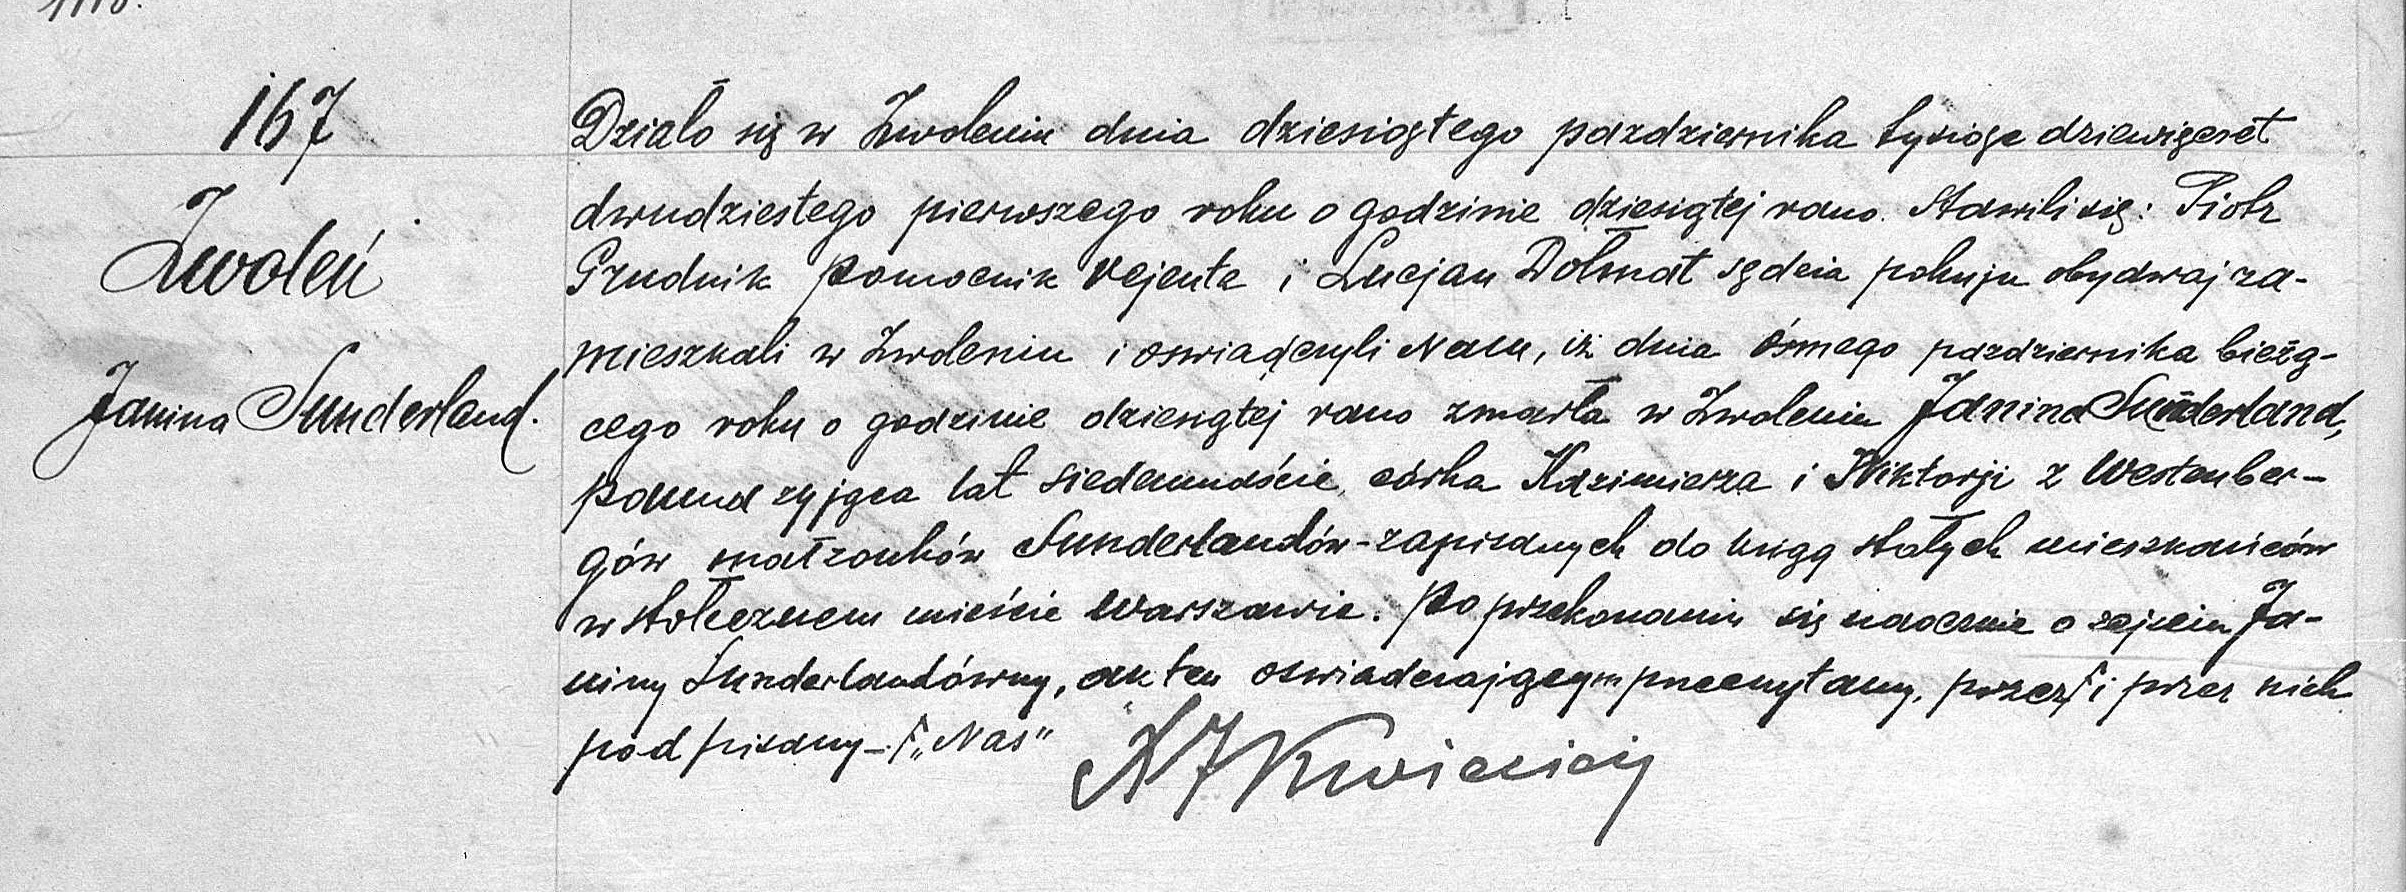 167
Zwoleń
Janina Sunderland.
Działo się w Zwoleniu dnia dziesiątego pazdziernika tysiąc dziewięcset
dwudziestego pierwszego roku o godzinie dziesiątej rano. Stawili się: Piotr
Grudnik pomocnik rejenta i Lucjan Dołmat sędzia pokuju obydwaj za-
mieszkali w Zwoleniu i oswiadczyli Nam, iż dnia ósmego pazdziernika bieżą-
cego roku o godzinie dziesiątej rano zmarła w Zwoleniu Janina Sunderland,
panna żyjąca lat siedemnaście, córka Kazimierza i Wiktorji z Westenber-
gów małżonków Sunderlandów - zapisanych do ksiąg stałych mieszkańców
w stołecznem mieście Warszawie. Po przekonaniu się naocznie o zejściu Ja-
niny Sunderlandówny, akt ten oswiadczającym przeczytany, przez √ i przez nich
podpisany - √ "Nas"